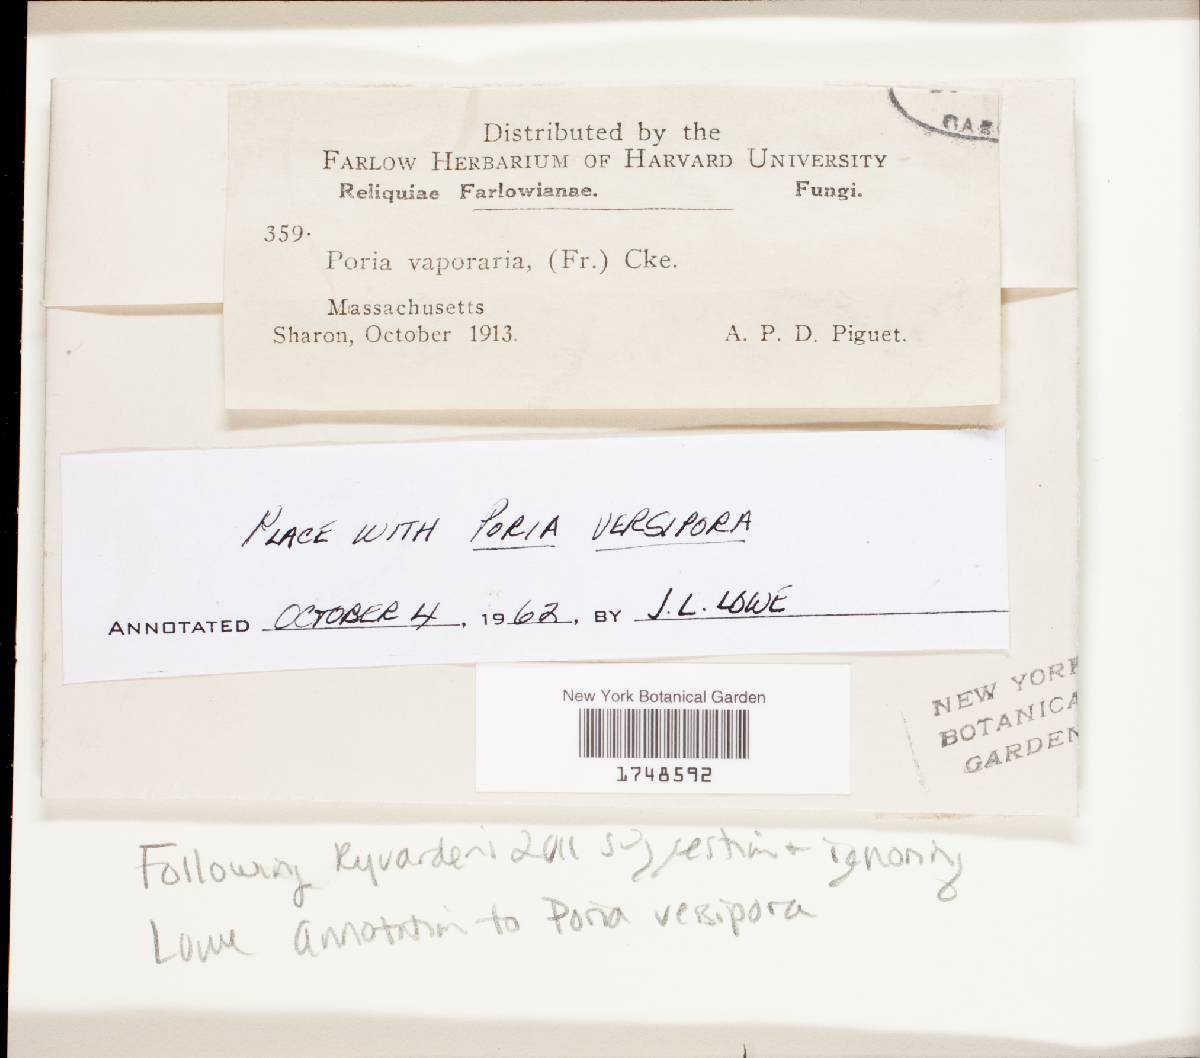 Distributed by the
FARLOW HERBARIUM OF HARVARD UNIVERSITY
Reliquiae Farlowianae. Fungi.
359.
Poria vaporaria, (Fr.) Cke.
Massachusetts
Sharon, October 1913. A. P. D. Piguet.
PLACE WITH PORIA VERSIPORA
ANNOTATED OCTOBER 4, 1962, BY J. L. LOWE
New York Botanical Garden
1748592
NEW YORK
BOTANICA
GARDEN
Following Ryvarden's 2011 suggestion + ignoring
Lowe annotation to Poria versipora